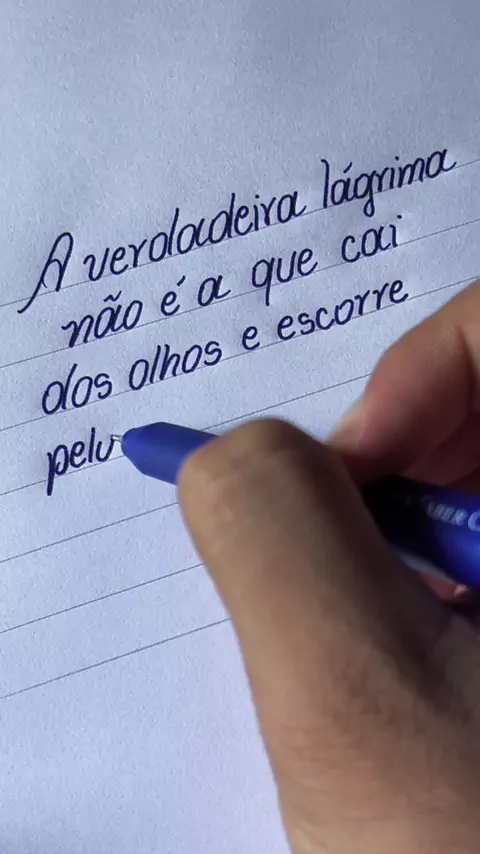 A verdadeira lágrima
não é a que cai
dos olhos e escorre